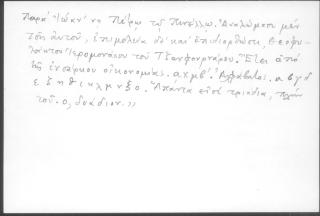 Παρά Ἰωάν' νῃ Πέτρῳ τῷ Πινέλλῳ. Ἀναλώμασι μὲν
τοῖς αὐτοῦ, ἐπιμελείᾳ δὲ καὶ ἐπιδιορθώσει, Θεοφυ-
λάκτου Ἱερομονάχου τοῦ Τζανφουρνάρου. Ἔτει ἀπὸ
τῆς ἐνσάρκου οἰκονομίας. αχμβ'. Ἀλφάβητος. α β γ δ
ε ζ η θ ι κ λ μ ν ξ ο. Ἅπαντα εἰσὶ τριάδια, πλὴν
τοῦ. ο, δυάδιον.»